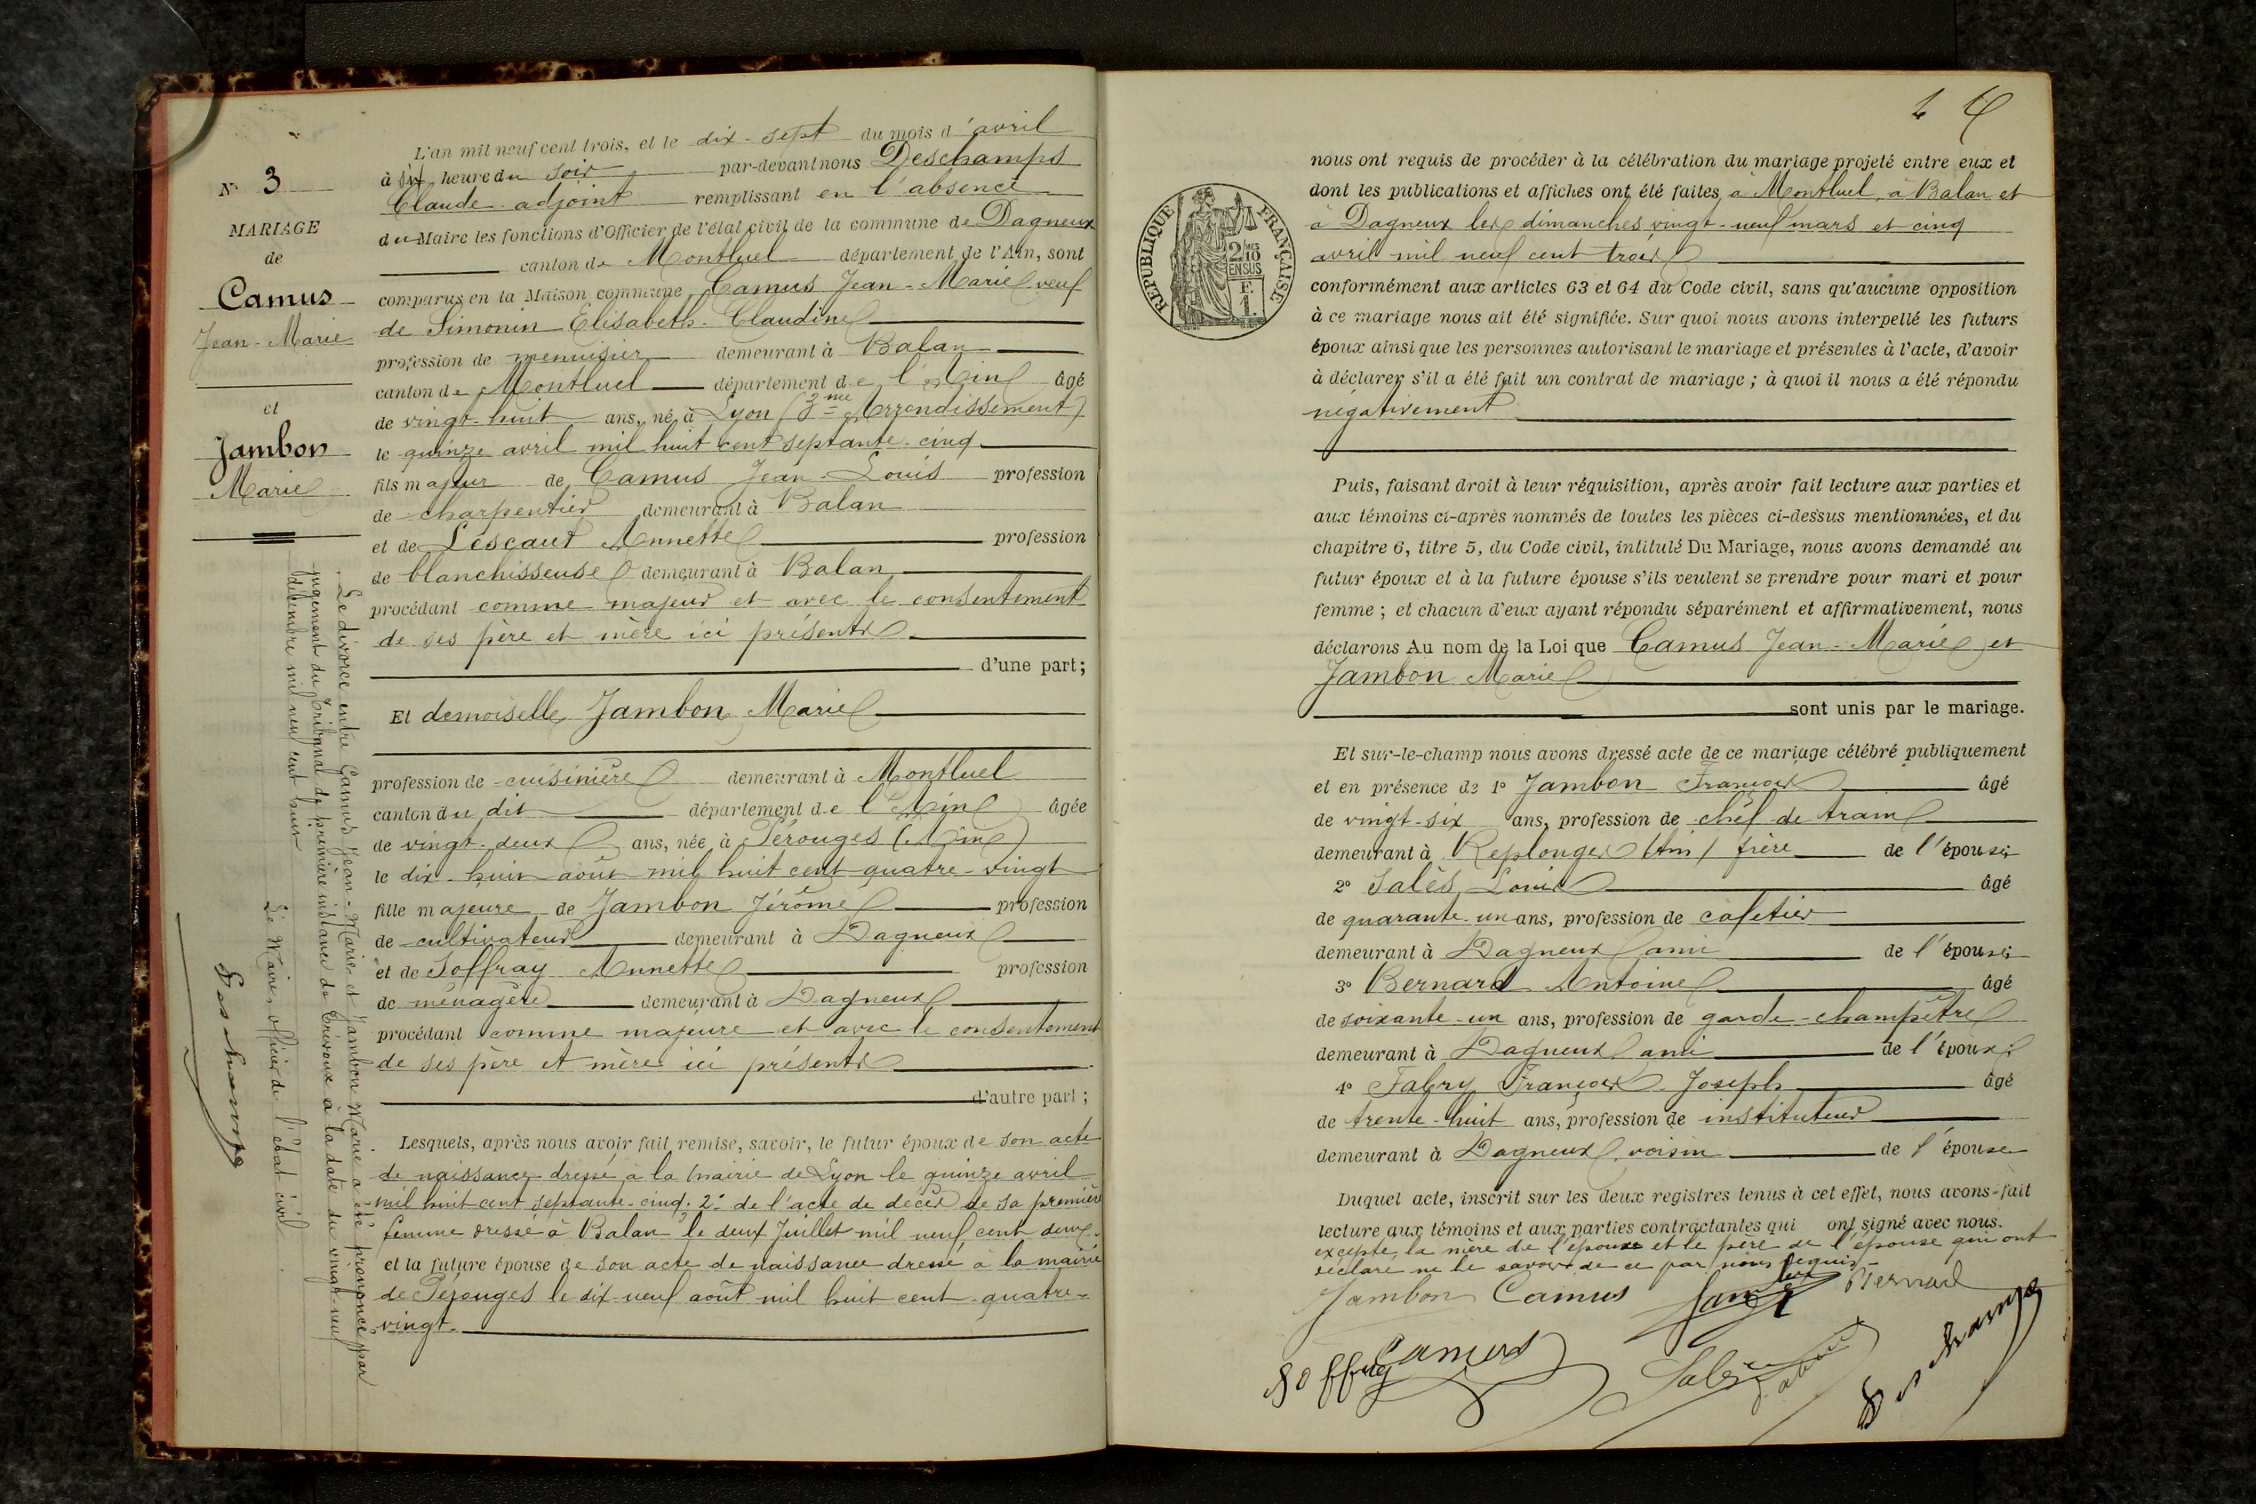 N° 3
MARIAGE
de
Camus
Jean-Marie
et
Jambon
Marie
Le divorce entre Camus Jean-Marie et Jambon Marie a été prononcé par
jugement du Tribunal de première instance de Trévoux à la date du vingt-neuf
décembre mil neuf cent huit
Le Maire, officier de l'état civil
Deschamps
L'an mil neuf cent trois, et le dix-sept du mois d'avril
à six heure du soir par-devant nous Deschamps
Claude adjoint remplissant en l'absence
du Maire les fonctions d'Officier de l'état civil de la commune de Dagneux
canton de Montluel département de l'Ain, sont
comparus en la Maison commune Camus Jean-Marie veuf
de Simonin Elisabeth-Claudine
profession de menuisier demeurant à Balan
canton de Montluel département de l'Ain âgé
de vingt-huit ans, né à Lyon (3me Arrondissement)
le quinze avril mil huit cent septante-cinq
fils majeur de Camus Jean-Louis profession
de charpentier demeurant à Balan
et de Lescaut Annette profession
de blanchisseuse demeurant à Balan
procédant comme majeur et avec le consentement
de ses père et mère ici présents
d'une part;
Et demoiselle Jambon Marie
profession de cuisinière demeurant à Montluel
canton du dit département de l'Ain âgée
de vingt-deux ans, née à Pérouges (Ain)
le dix-huit août mil huit cent quatre-vingt
fille majeure de Jambon Jérôme profession
de cultivateur demeurant à Dagneux
et de Soffray Annette profession
de ménagère demeurant à Dagneux
procédant comme majeure et avec le consentement
de ses père et mère ici présents
d'autre part;
Lesquels, après nous avoir fait remise, savoir, le futur époux de son acte
de naissance dressé à la mairie de Lyon le quinze avril
mil huit cent septante-cinq. 2° de l'acte de décès de sa première
femme dressé à Balan le deux Juillet mil neuf cent deux.
et la future épouse de son acte de naissance dressé à la mairie
de Pérouges le dix-neuf août mil huit cent quatre-
vingt.
4
RÉPUBLIQUE FRANÇAISE
2/10 EN SUS
F. 1.
nous ont requis de procéder à la célébration du mariage projeté entre eux et
dont les publications et affiches ont été faites à Montluel, à Balan et
à Dagneux les dimanches vingt-neuf mars et cinq
avril mil neuf cent trois
conformément aux articles 63 et 64 du Code civil, sans qu'aucune opposition
à ce mariage nous ait été signifiée. Sur quoi nous avons interpellé les futurs
époux ainsi que les personnes autorisant le mariage et présentes à l'acte, d'avoir
à déclarer s'il a été fait un contrat de mariage; à quoi il nous a été répondu
négativement
Puis, faisant droit à leur réquisition, après avoir fait lecture aux parties et
aux témoins ci-après nommés de toutes les pièces ci-dessus mentionnées, et du
chapitre 6, titre 5, du Code civil, intitulé Du Mariage, nous avons demandé au
futur époux et à la future épouse s'ils veulent se prendre pour mari et pour
femme; et chacun d'eux ayant répondu séparément et affirmativement, nous
déclarons Au nom de la Loi que Camus Jean-Marie et
Jambon Marie
sont unis par le mariage.
Et sur-le-champ nous avons dressé acte de ce mariage célébré publiquement
et en présence de 1° Jambon François âgé
de vingt-six ans, profession de chef de train
demeurant à Replonges (Ain) frère de l'épouse;
2° Salès Louis âgé
de quarante-un ans, profession de cafetier
demeurant à Dagneux ami de l'épouse;
3° Bernard Antoine âgé
de soixante-un ans, profession de garde-champêtre
demeurant à Dagneux ami de l'épouse;
4° Fabry François-Joseph âgé
de trente-huit ans, profession de instituteur
demeurant à Dagneux voisin de l'épouse
Duquel acte, inscrit sur les deux registres tenus à cet effet, nous avons fait
lecture aux témoins et aux parties contractantes qui ont signé avec nous.
excepté la mère de l'époux et le père de l'épouse qui ont
déclaré ne le savoir de ce par nous requis.
Jambon Camus Bernard
Soffray Camus Salès Deschamps